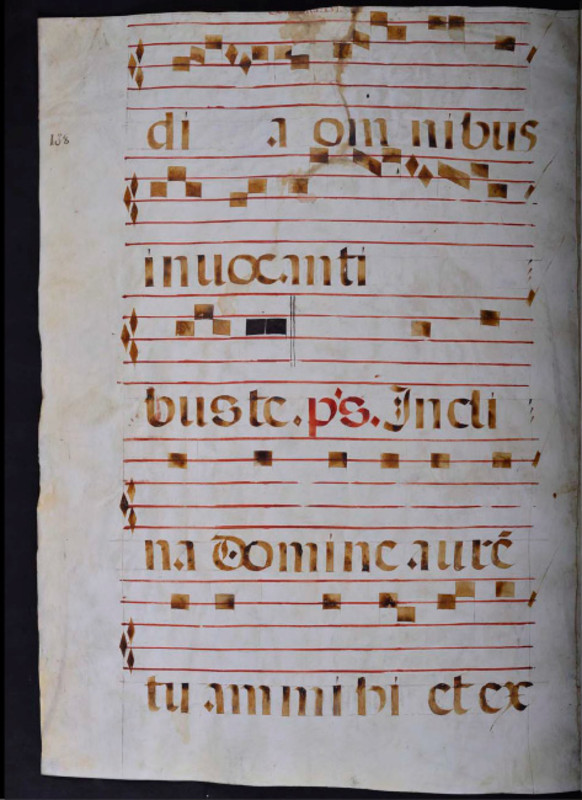 138
di a omnibus
inuocanti
buste. p's. Incli
na Domine aurē
tu am mihi et ex